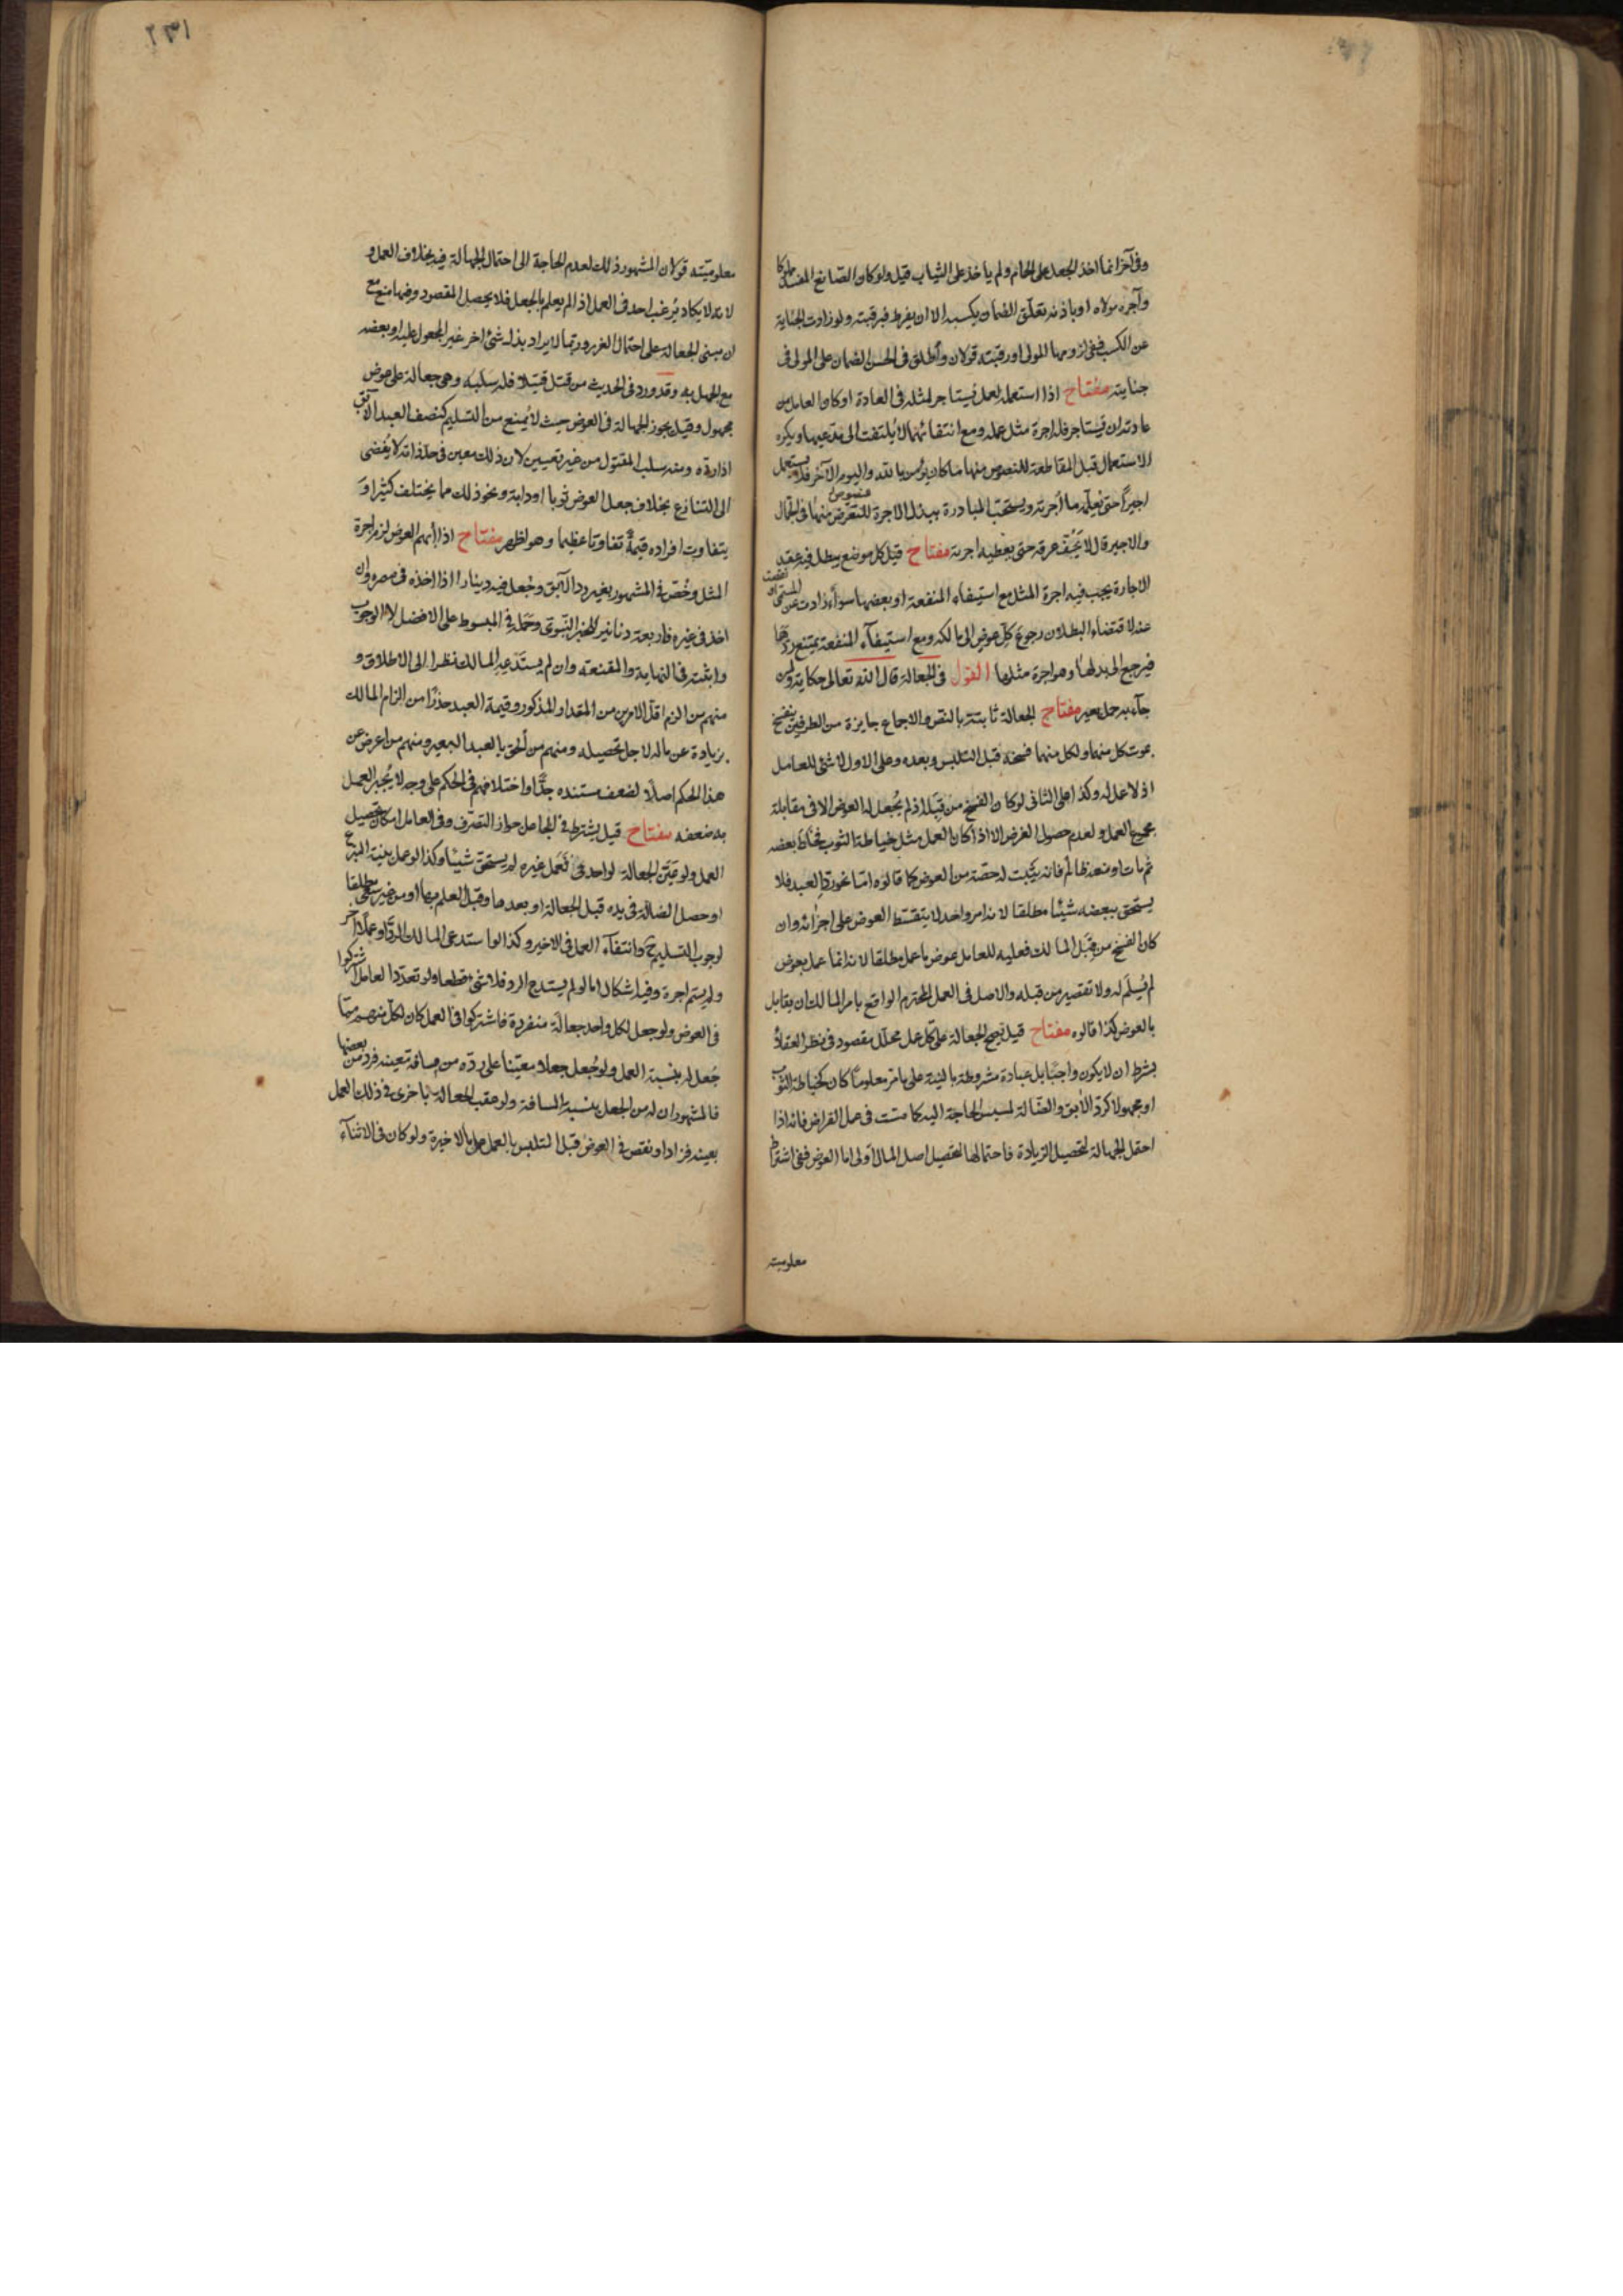 وفى آخر انما اخذ الجعل على الحمام ولم ياخذ على الثياب قيل ولو كان الصانع المفسد مملوكا
وآجره مولاه او باذنه تعلّق الضمان بكسبه الا ان يفرط فبرقبته ولو زادت الجناية
عن الكسب ففى لزومها المولى او رقبته قولان وأطلق فى الحسن الضمان على المولى فى
جنايته مفتاح اذا استعمله لعمل يُستاجر لمثله فى العادة او كان العامل من
عادته ان يُستاجر فله اجرة مثل عمله ومع انتفائهما لا يُلتفت الى مدّعيها ويكره
الاستعمال قبل المقاطعة للنصوص منها من كان يؤمن بالله واليوم الآخر فلا يستعمل
اجيراً حتى يُعلمه ما أجرته ويستحبّ المبادرة ببذل الاجرة للنصوص منها فى الجمّال
والاجير قال لا يَجُفّ عرقه حتى يعطيه اجرته مفتاح قيل كل موضع يبطل فيه عقد
الاجارة يجب فيه اجرة المثل مع استيفاء المنفعة او بعضها سواء زادت عن المسمّى او نقصت
عنه لاقتضاء البطلان رجوع كلّ عوض الى مالكه ومع استيفاء المنفعة يمتنع ردّها
فيرجع الى بدلها وهو اجرة مثلها القول فى الجعالة قال الله تعالى حكاية ولمن
جآء به حمل بعير مفتاح الجعالة ثابتة بالنص والاجماع جايزة من الطرفين ينفسخ
بموت كل منهما ولكل منهما فسخه قبل التلبس وبعده وعلى الاول لا شئ للعامل
اذ لا عمل له وكذا على الثانى لو كان الفسخ من قِبَله اذ لم يُجعل له العوض الا فى مقابلة
مجموع العمل ولعدم حصول الغرض الا اذا كان العمل مثل خياطة الثوب فخاط بعضه
ثم مات او منعه ظالم فانه يَثبت له حصّته من العوض كما قالوه امّا نحو ردّ العبد فلا
يستحق ببعضه شيئا مطلقا لانه امر واحد لا يتقسّط العوض على اجزائه وان
كان الفسخ من قِبَل المالك فعليه للعامل عوض ما عمل مطلقا لانه انما عمل بعوض
لم يُسلّم له ولا تقصير من قبله والاصل فى العمل المحترم الواقع بامر المالك ان يقابل
بالعوض كذا قالوه مفتاح قيل تصح الجعالة على كل عمل محلّل مقصود فى نظر العقلاء
بشرط ان لا يكون واجبًا بل عبادة مشروطة بالنية على ما مرّ معلومًا كان كخياطة الثوب
او مجهولا كردّ الآبق والضّالة لمسيس الحاجة اليه كما مسّت فى عمل القراض فانه اذا
احتمل الجهالة لتحصيل الزيادة فاحتمالها لتحصيل اصل المال اولى اما العوض ففى اشتراط
معلوميته
٢٣١
معلوميّته قولان المشهور ذلك لعدم الحاجة الى احتمال الجهالة فيه بخلاف العمل و
لانه لا يكاد يُرغب احد فى العمل اذا لم يعلم بالجعل فلا يحصل المقصود وفيهما منع مع
ان مبنى الجعالة على احتمال الغرر وربّما لا يراد بذل شئ اخر غير المجعول عليه او بعضه
مع الجهل به وقد ورد فى الحديث من قتل قتيلا فله سَلَبُه وهى جعالة على عوض
مجهول وقيل يجوز الجهالة فى العوض حيث لا يُمنع من التسليم كنصف العبد الآبق
اذا ردّه ومنه سلب المقتول من غير تعيين لان ذلك معين فى حدّ ذاته لا يُفضى
الى التنازع بخلاف جعل العوض ثوبا او دابة ونحو ذلك مما يختلف كثيرا و
يتفاوت افراده قيمةً تفاوتا عظيما وهو اظهر مفتاح اذا أبهم العوض لزم اجرة
المثل وخُصّ فى المشهور بغير ردّ الآبق وجُعل فيه دينارا اذا اخذه فى مصره وان
اخذ فى غيره فاربعة دنانير للخبر النبوى وحَمَله فى المبسوط على الافضل لا الوجوب
واثبته فى النهاية والمقنعة وان لم يستدعِه المالك نظرا الى الاطلاق و
منهم من الزم اقلّ الامرين من المقدار المذكور وقيمة العبد حذرًا من الزام المالك
بزيادة عن ماله لاجل تحصيله ومنهم من ألحق بالعبد البعير ومنهم من اعرض عن
هذا الحكم اصلًا لضعف مستنده جدًّا واختلافهم فى الحكم على وجه لا يُجبر العمل
به ضعفه مفتاح قيل يشترط فى الجاعل جواز التصرّف وفى العامل امكان تحصيل
العمل ولو عَيَّن الجعالة لواحد فعَمل غيره لم يستحق شيئا وكذا لو عمل بنيّة التبرّع
او حصل الضالة فى يده قبل الجعالة او بعدها وقبل العلم بها او من غير سعى مطلقا
لوجوب التسليم ح وانتفآء العمل فى الاخير وكذا لو استدعى المالك الردّ او عملًا آخر
ولم يسمّ اجرة وفيه اشكال اما لو لم يستدع الرد فلا شئ قطعا ولو تعدّد العامل اشتركوا
فى العوض ولو جعل لكل واحد جعالة منفردة فاشتركوا فى العمل كان لكل منهم ممّا
جُعل له بنسبة العمل ولو جُعل جعلا معيّنا على ردّه من مسافة معينة فردّ من بعضها
فالمشهور ان له من الجعل بنسبة المسافة ولو عقب الجعالة باخرى فى ذلك العمل
بعينه فزاد او نقص فى العوض قبل التلبس بالعمل عمل بالاخيرة ولو كان فى الاثنآء